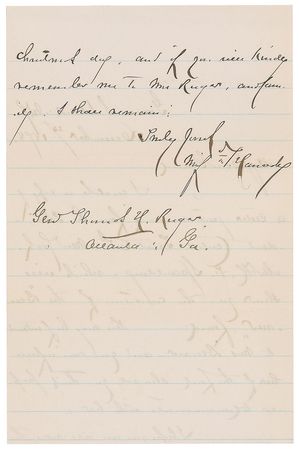 Christmas day, and if you will kindly
remember me to Mrs Ruger, and fam-
ily. I shall remain:
Truly Yours
Genl Thomas H. Ruger
Atlanta Ga.